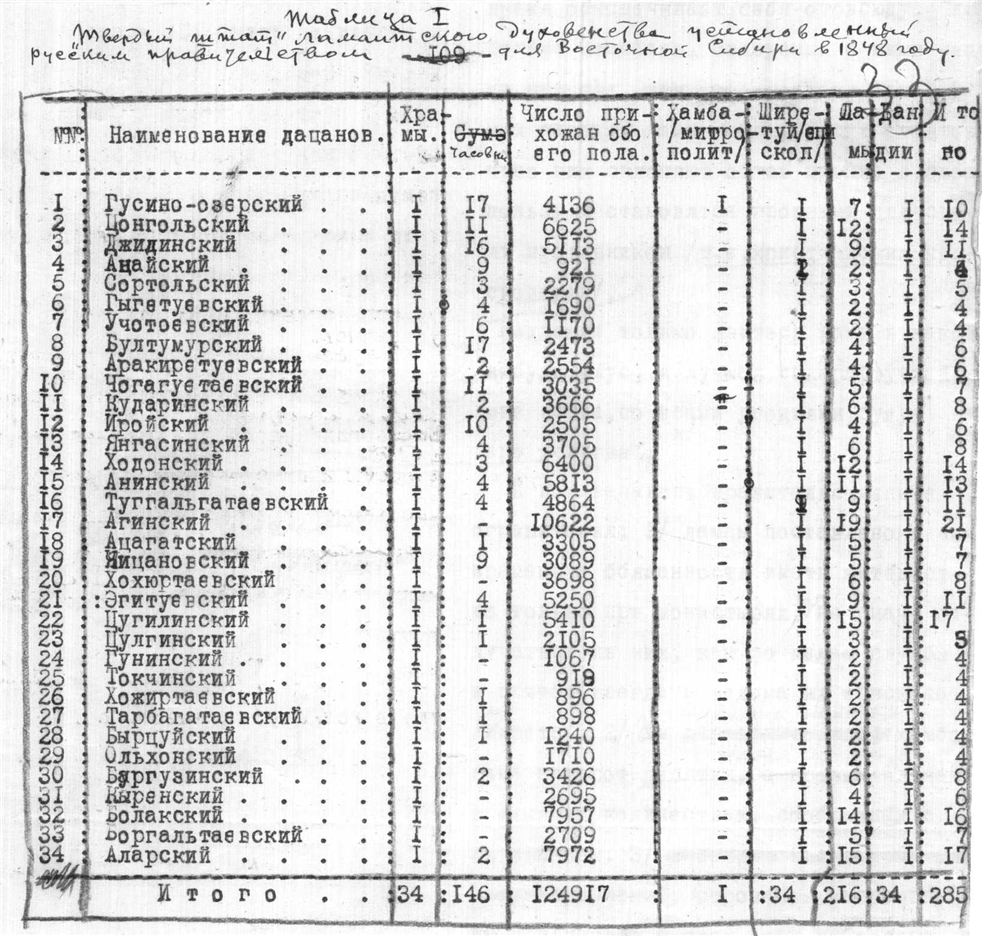 Таблица I
"Твердый штат" ламаитского духовенства установленный
русским правительством 109 для Восточной Сибири в 1848 году.
№№ Наименование дацанов. Хра- мы. Сумэ Часовн Число при- хожан обо его пола. Хамба- /митро- полит/ Шире- туй/епи скоп/ Ла- мы Дан дии И то го
I Гусино-озерский . . . I I7 4I36 I I 7 I I0
2 Цонгольский . . . I II 6625 - I I2 I I4
3 Джидинский . . . I I6 5II3 - I 9 I II
4 Ацайский . . . I 9 92I - I 2 I 4
5 Сортольский . . . I 3 2279 - I 3 I 5
6 Гыгетуевский . . . I 4 I690 - I 2 I 4
7 Учотоевский . . . I 6 II70 - I 2 I 4
8 Бултумурский . . . I I7 2473 - I 4 I 6
9 Аракиретуевский . . I 2 2554 - I 4 I 6
I0 Чогагуетаевский . . I II 3035 - I 5 I 7
II Кударинский . . . I I2 3666 - I 6 I 8
I2 Иройский . . . I I0 2505 - I 4 I 6
I3 Янгасинский . . . I 4 3705 - I 6 I 8
I4 Ходонский . . . I 3 6400 - I I2 I I4
I5 Анинский . . . I 4 58I3 - I II I I3
I6 Тугнальгаваевский . I 4 4864 - I 9 I II
I7 Агинский . . . I I I0622 - I I9 I 2I
I8 Ацагатский . . . I I 3308 - I 5 I 7
I9 Чицановский . . . I 9 3085 - I 5 I 7
20 Хохюртаевский . . I - 3698 - I 6 I 8
2I Эгитуевский . . . I 4 5250 - I 9 I II
22 Цугилинский . . . I I 54I0 - I I5 I I7
23 Цулгинский . . . I I 2I05 - I 3 I 5
24 Гунинский . . . I - I067 - I 2 I 4
25 Токчинский . . . I - 9I8 - I 2 I 4
26 Хожиртаевский . . I - 896 - I 2 I 4
27 Тарбагатаевский . . I I 898 - I 2 I 4
28 Бырцуйский . . . I - I240 - I 2 I 4
29 Ольхонский . . . I - I7I0 - I 2 I 4
30 Баргузинский . . . I 2 3426 - I 6 I 8
3I Кыренский . . . I - 2695 - I 4 I 6
32 Болакский . . . I - 7957 - I I4 I I6
33 Боргальтаевский . . I - 2709 - I 5 I 7
34 Аларский . . . I 2 7972 - I I5 I I7
И т о г о . 34 I46 I249I7 I 34 2I6 34 285